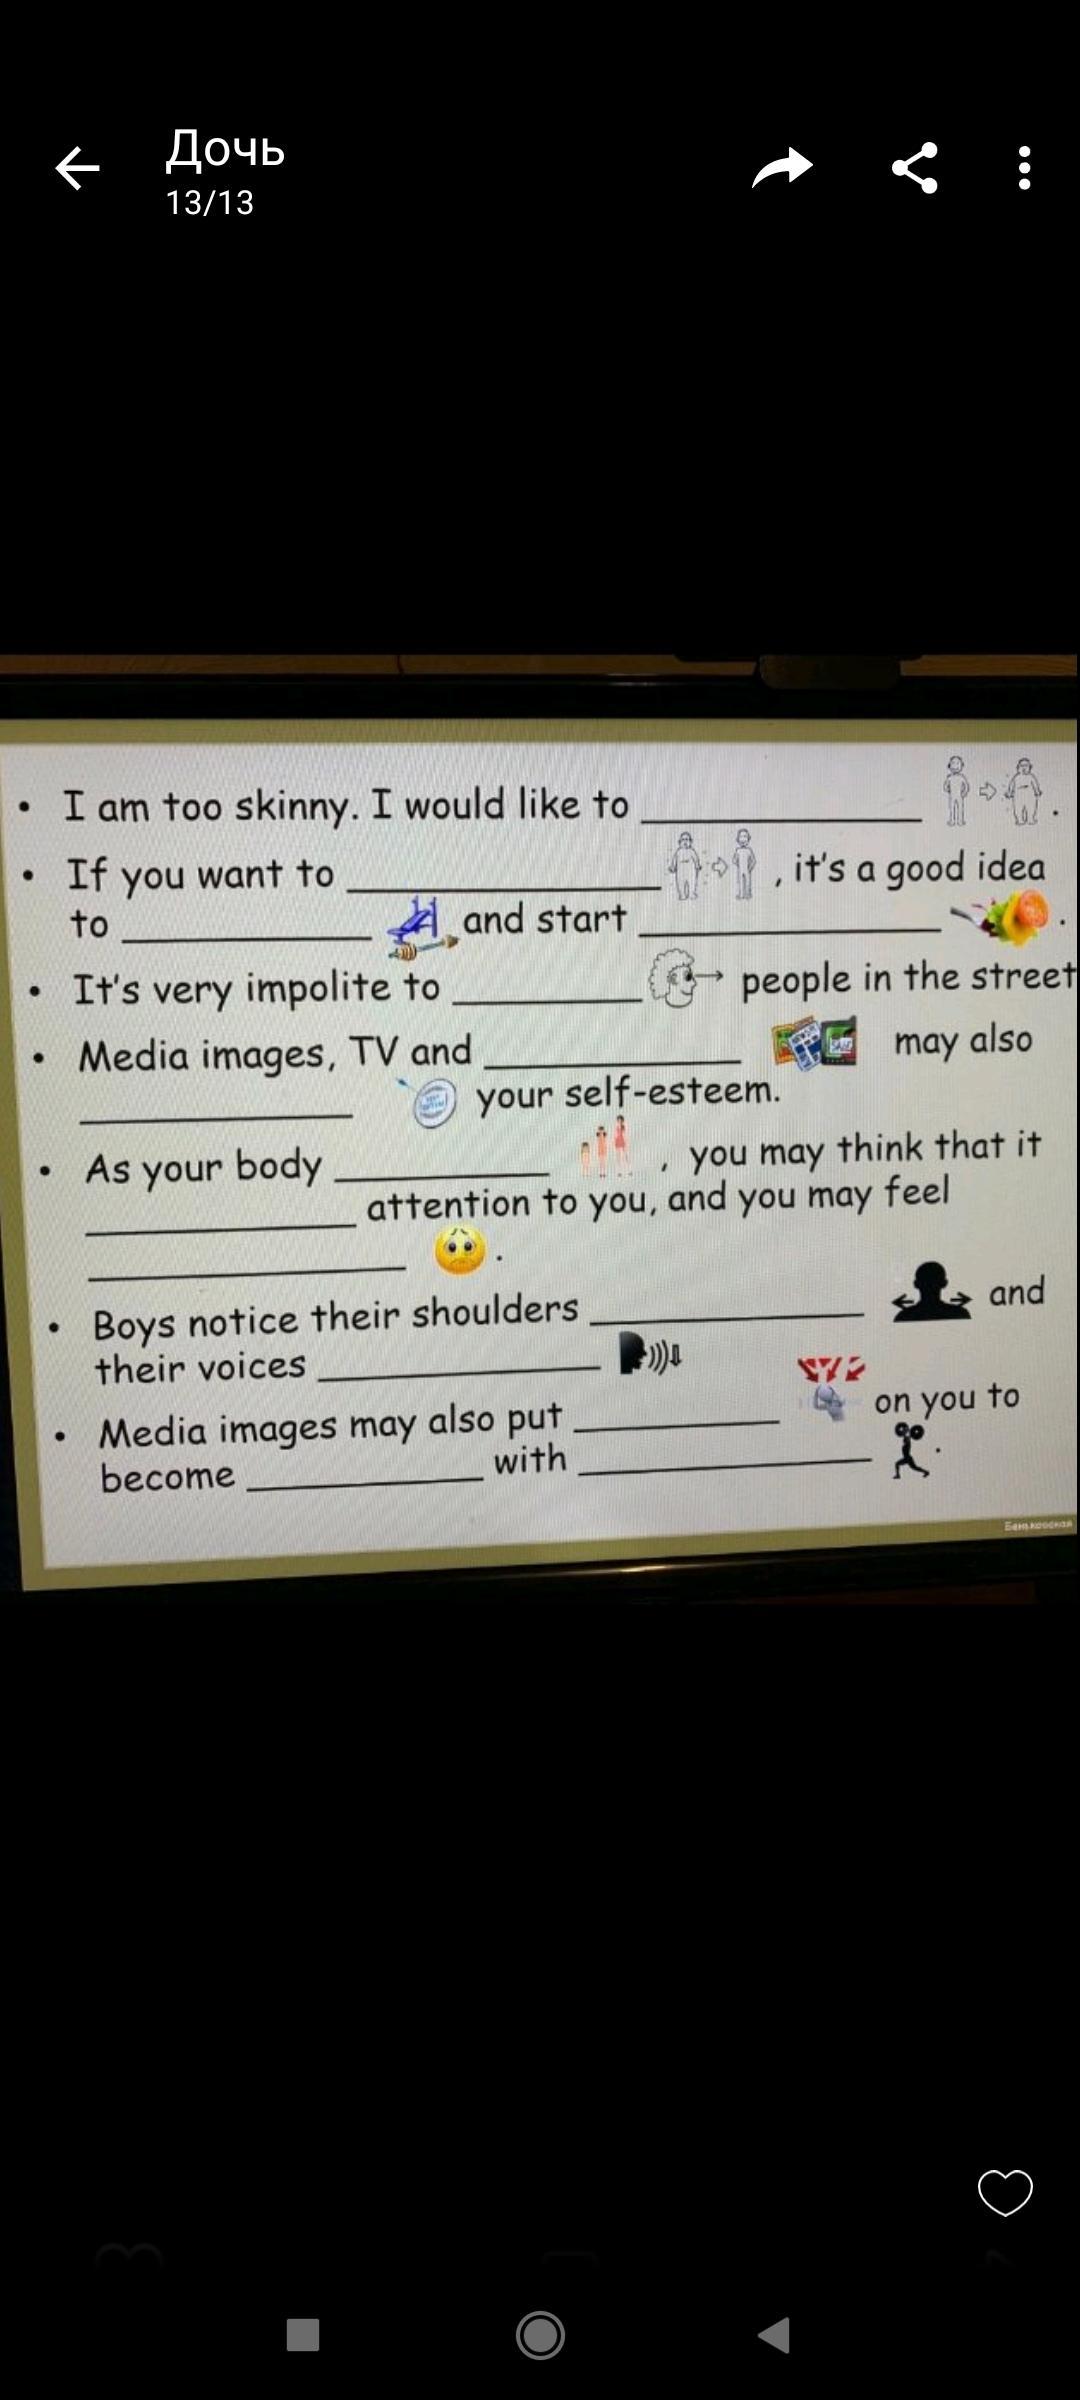 Дочь
13/13
• I am too skinny. I would like to ____________ .
• If you want to ____________ , it's a good idea
to ____________ and start ____________ .
• It's very impolite to ____________ people in the street
• Media images, TV and ____________ may also
____________ your self-esteem.
• As your body ____________ , you may think that it
____________ attention to you, and you may feel
____________ .
• Boys notice their shoulders ____________ and
their voices ____________
• Media images may also put ____________ on you to
become ____________ with ____________ .